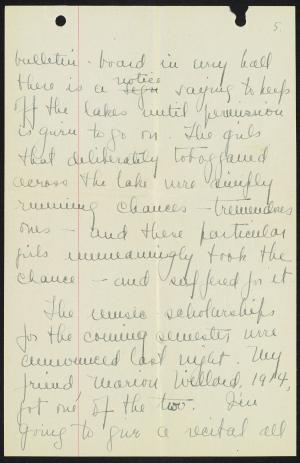 5.
bulletin-board in every hall
there is a notice saying to keep
off the lakes until permission
is given to go on. The girls
that deliberately tobogganed
across the lake were simply
running chances - tremendous
ones - and these particular
girls unmeaningly took the
chance - and suffered for it
The music scholarships
for the coming semester were
announced last night. My
friend Marion Willard, 1914,
got one of the two. I'm
going to give a recital all